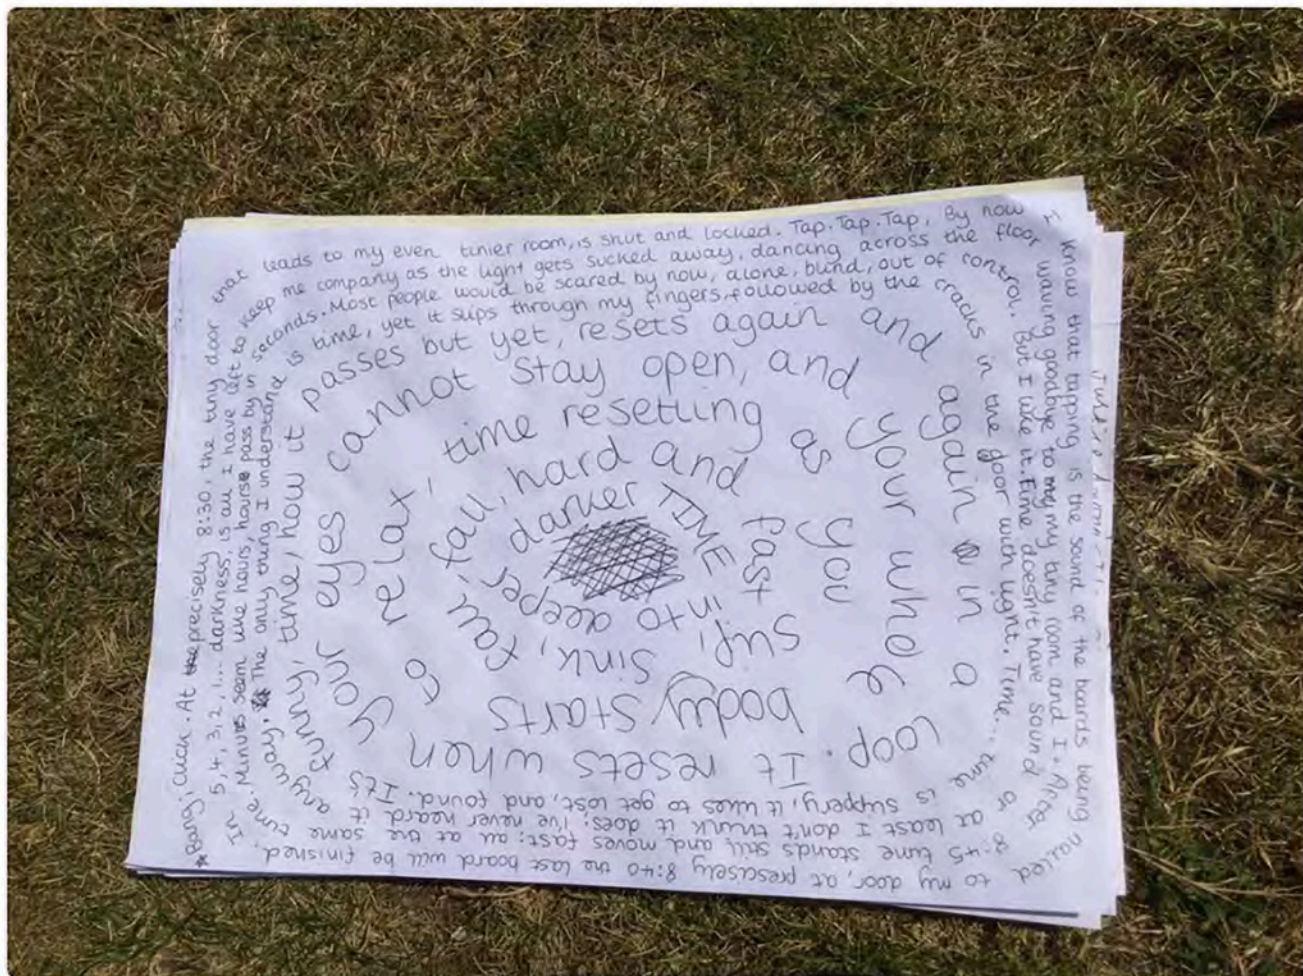 * Bang, Click. At precisely 8:30, the tiny door
that leads to my even tinier room, is shut and locked. Tap. Tap. Tap. By now
I know that tapping is the sound of the boards being nailed
to my door, at prescisely 8:40 the last board will be finished.
In 5, 4, 3, 2, 1... darkness, is all I have left to
keep me company as the light gets sucked away, dancing across the floor
waving goodbye to my my tiny room and I. After
8:45 time stands still and moves fast; all at the same time.
Minutes seem like hours, hours pass by in
seconds. Most people would be scared by now, alone, blind, out of control.
But I like it. Time doesn't have sound or
at least I don't think it does; I've never heard it
anyway, The only thing I understand
is time, yet it slips through my fingers, followed by the
cracks in the door with light. Time... time
is slippery, it likes to get lost, and found. It's
funny, time, how it
passes but yet, resets again and
again in a loop.
It resets when
your eyes
cannot stay open, and
your whole
body starts
to relax,
time resetting
as you
slip, sink,
fall, fall, hard and
fast
in to deeper,
darker TIME